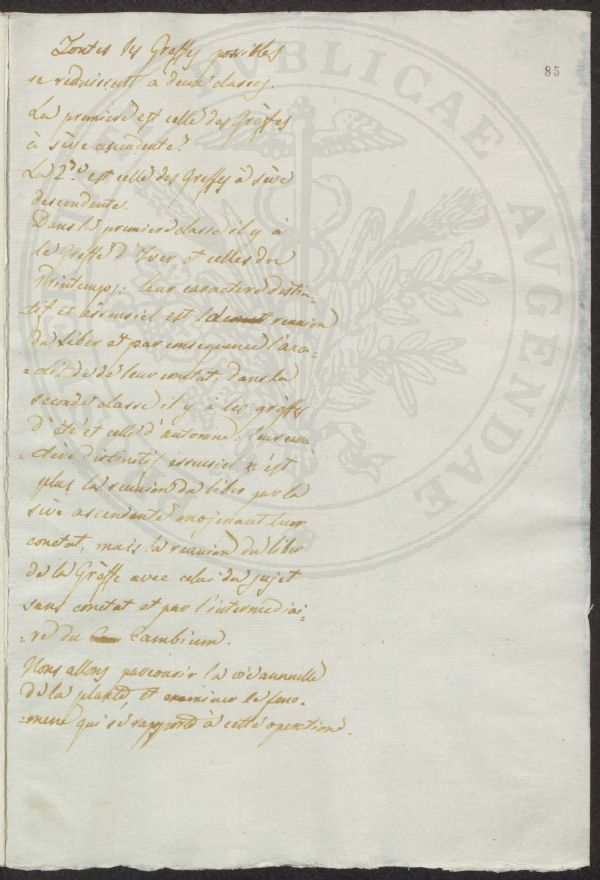 85
Toutes les Greffes possibles
se reduissent à deux classes.
La premiere est celle des Greffes
à sève ascendente.
La 2.de est celle des Greffes à sève
descendente.
Dans la premiere classe il y à
le Greffe d'Iver et celles du
Printemps: leur caractere distin-
tif et essensiel est la reunion
du Liber et par consequence
de leur contat, dans la
seconde classe il y à les greffes
d'été et celle d'automne. leur cara-
-ctere distinctif essensiel n'est
plus la reunion du liber par la
sève ascendente mojenant leur
conctat, mais la reunion du liber
de la Greffe avec celui du sujet
sans conctat et par l'intermediai-
-re du Cambium.
Nous allons parcourir la vie annuelle
de la plante, et examiner le feno-
-mene qui se rapporte à cette operation.
PUBLICAE
AUGENDAE